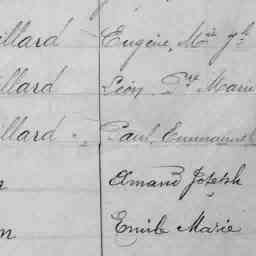 illard Eugène, Mie Jh
illard Léon Pre Marie
illard Paul Emmanuel
Amand Joseph
n Emile Marie